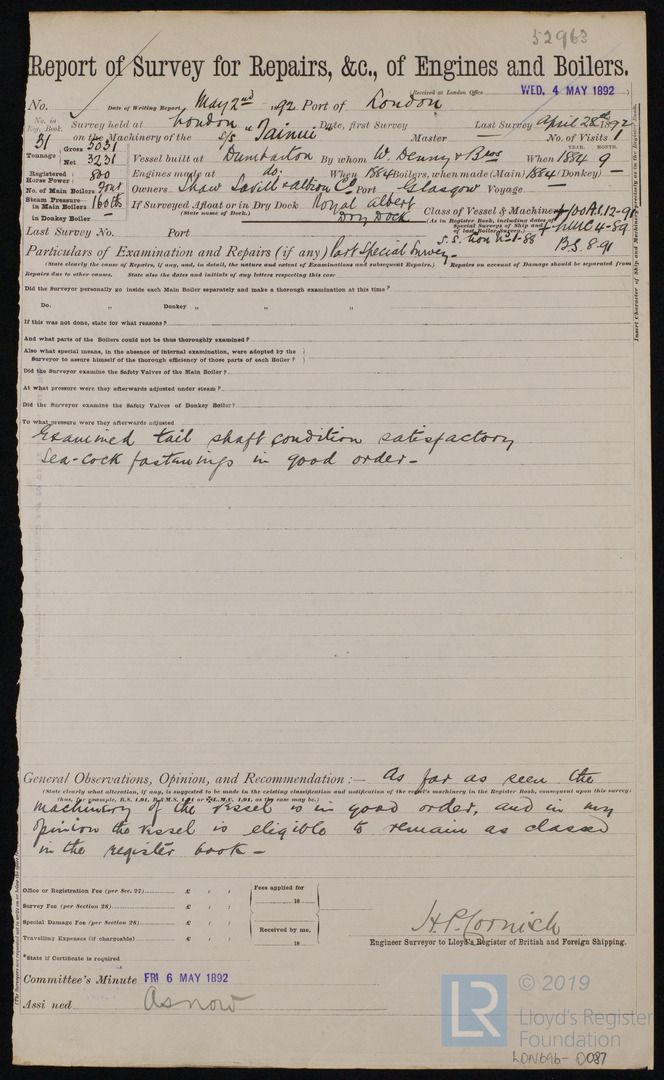 52963
Report of Survey for Repairs, &c., of Engines and Boilers.
Received at London Office WED. 4 MAY 1892
No. Date of Writing Report May 2nd 1892 Port of London
No. in Reg. Book. Survey held at London Date, first Survey Last Survey April 28th 1892
31 on the Machinery of the S/S "Tainui" Master — No. of Visits 1
Tonnage Gross 5031 Net 3231
Vessel built at Dumbarton By whom W. Denny & Bros When 1884 YEAR. 9 MONTH.
Registered Horse Power 800 Engines made at do. When 1884 Boilers, when made (Main) 1884 (Donkey) —
No. of Main Boilers Four Owners Shaw Savill & Albion Co Port Glasgow Voyage —
Steam Pressure in Main Boilers 160 lbs If Surveyed Afloat or in Dry Dock Royal Albert Dry Dock
(State name of Dock.)
in Donkey Boiler —
Class of Vessel & Machinery 100A1. 12-91
(As in Register Book, including dates of Special Surveys of Ship and of last Boiler Survey.) LMC 4-89
S.S. Lon No 1-88 B.S. 8-91
Last Survey No. Port
Particulars of Examination and Repairs (if any) Part Special Survey —
(State clearly the cause of Repairs, if any, and, in detail, the nature and extent of Examinations and subsequent Repairs.) Repairs on account of Damage should be separated from
Repairs due to other causes. State also the dates and initials of any letters respecting this case
Did the Surveyor personally go inside each Main Boiler separately and make a thorough examination at this time?
Do. " Donkey " " "
If this was not done, state for what reasons?
And what parts of the Boilers could not be thus thoroughly examined?
Also what special means, in the absence of internal examination, were adopted by the
Surveyor to assure himself of the thorough efficiency of those parts of each Boiler?
Did the Surveyor examine the Safety Valves of the Main Boiler?
At what pressure were they afterwards adjusted under steam?
Did the Surveyor examine the Safety Valves of Donkey Boiler?
To what pressure were they afterwards adjusted
Examined tail shaft condition satisfactory
Sea-cock fastenings in good order —
General Observations, Opinion, and Recommendation :— As far as seen the
(State clearly what alteration, if any, is suggested to be made in the existing classification and notification of the vessel's machinery in the Register Book, consequent upon this survey;
thus, for example, B.S. 1,91, B.&M.S. 1,91 or L.M.C. 1,91, as the case may be.)
machinery of the vessel is in good order, and in my
opinion the vessel is eligible to remain as classed
in the register book —
Office or Registration Fee (per Sec. 27) £ : : Fees applied for
Survey Fee (per Section 28) £ : : 18
Special Damage Fee (per Section 28) £ : : Received by me,
Travelling Expenses (if chargeable) £ : : 18
H. P. Cornish
Engineer Surveyor to Lloyd's Register of British and Foreign Shipping.
*State if Certificate is required
Committee's Minute FRI 6 MAY 1892
Assigned As now
Insert Character of Ship and Machinery precisely as in the Register Book.
LR
© 2019
Lloyd's Register
Foundation
LON696-0087